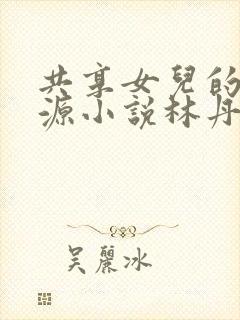 共享女兒的
源小説林丹
吴麗冰